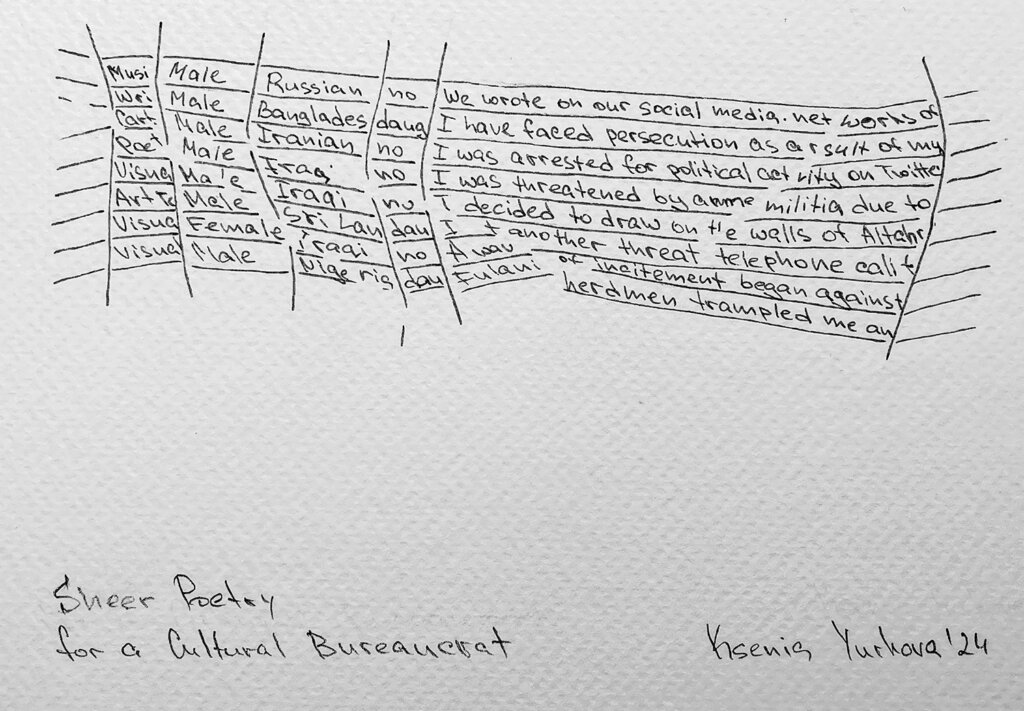 Musi Male Russian no We wrote on our social media. net works of
Wri Male Banglades daug I have faced persecution as a rsult of my
Cart Male Iranian no I was arrested for political act ivity on Twitte
Poet Male Iraqi no I was threatened by amme militia due to
Visua Male Iraqi no I decided to draw on the walls of Altahr
Art Te Male Sri Lan dau I t another threat telephone call f
Visua Female Iraqi no A wav of incitement began against
Visua Male Nigeria dau Fulani herdmen trampled me an
Sheer Poetry
for a Cultural Bureaucrat
Ksenia Yurkova '24